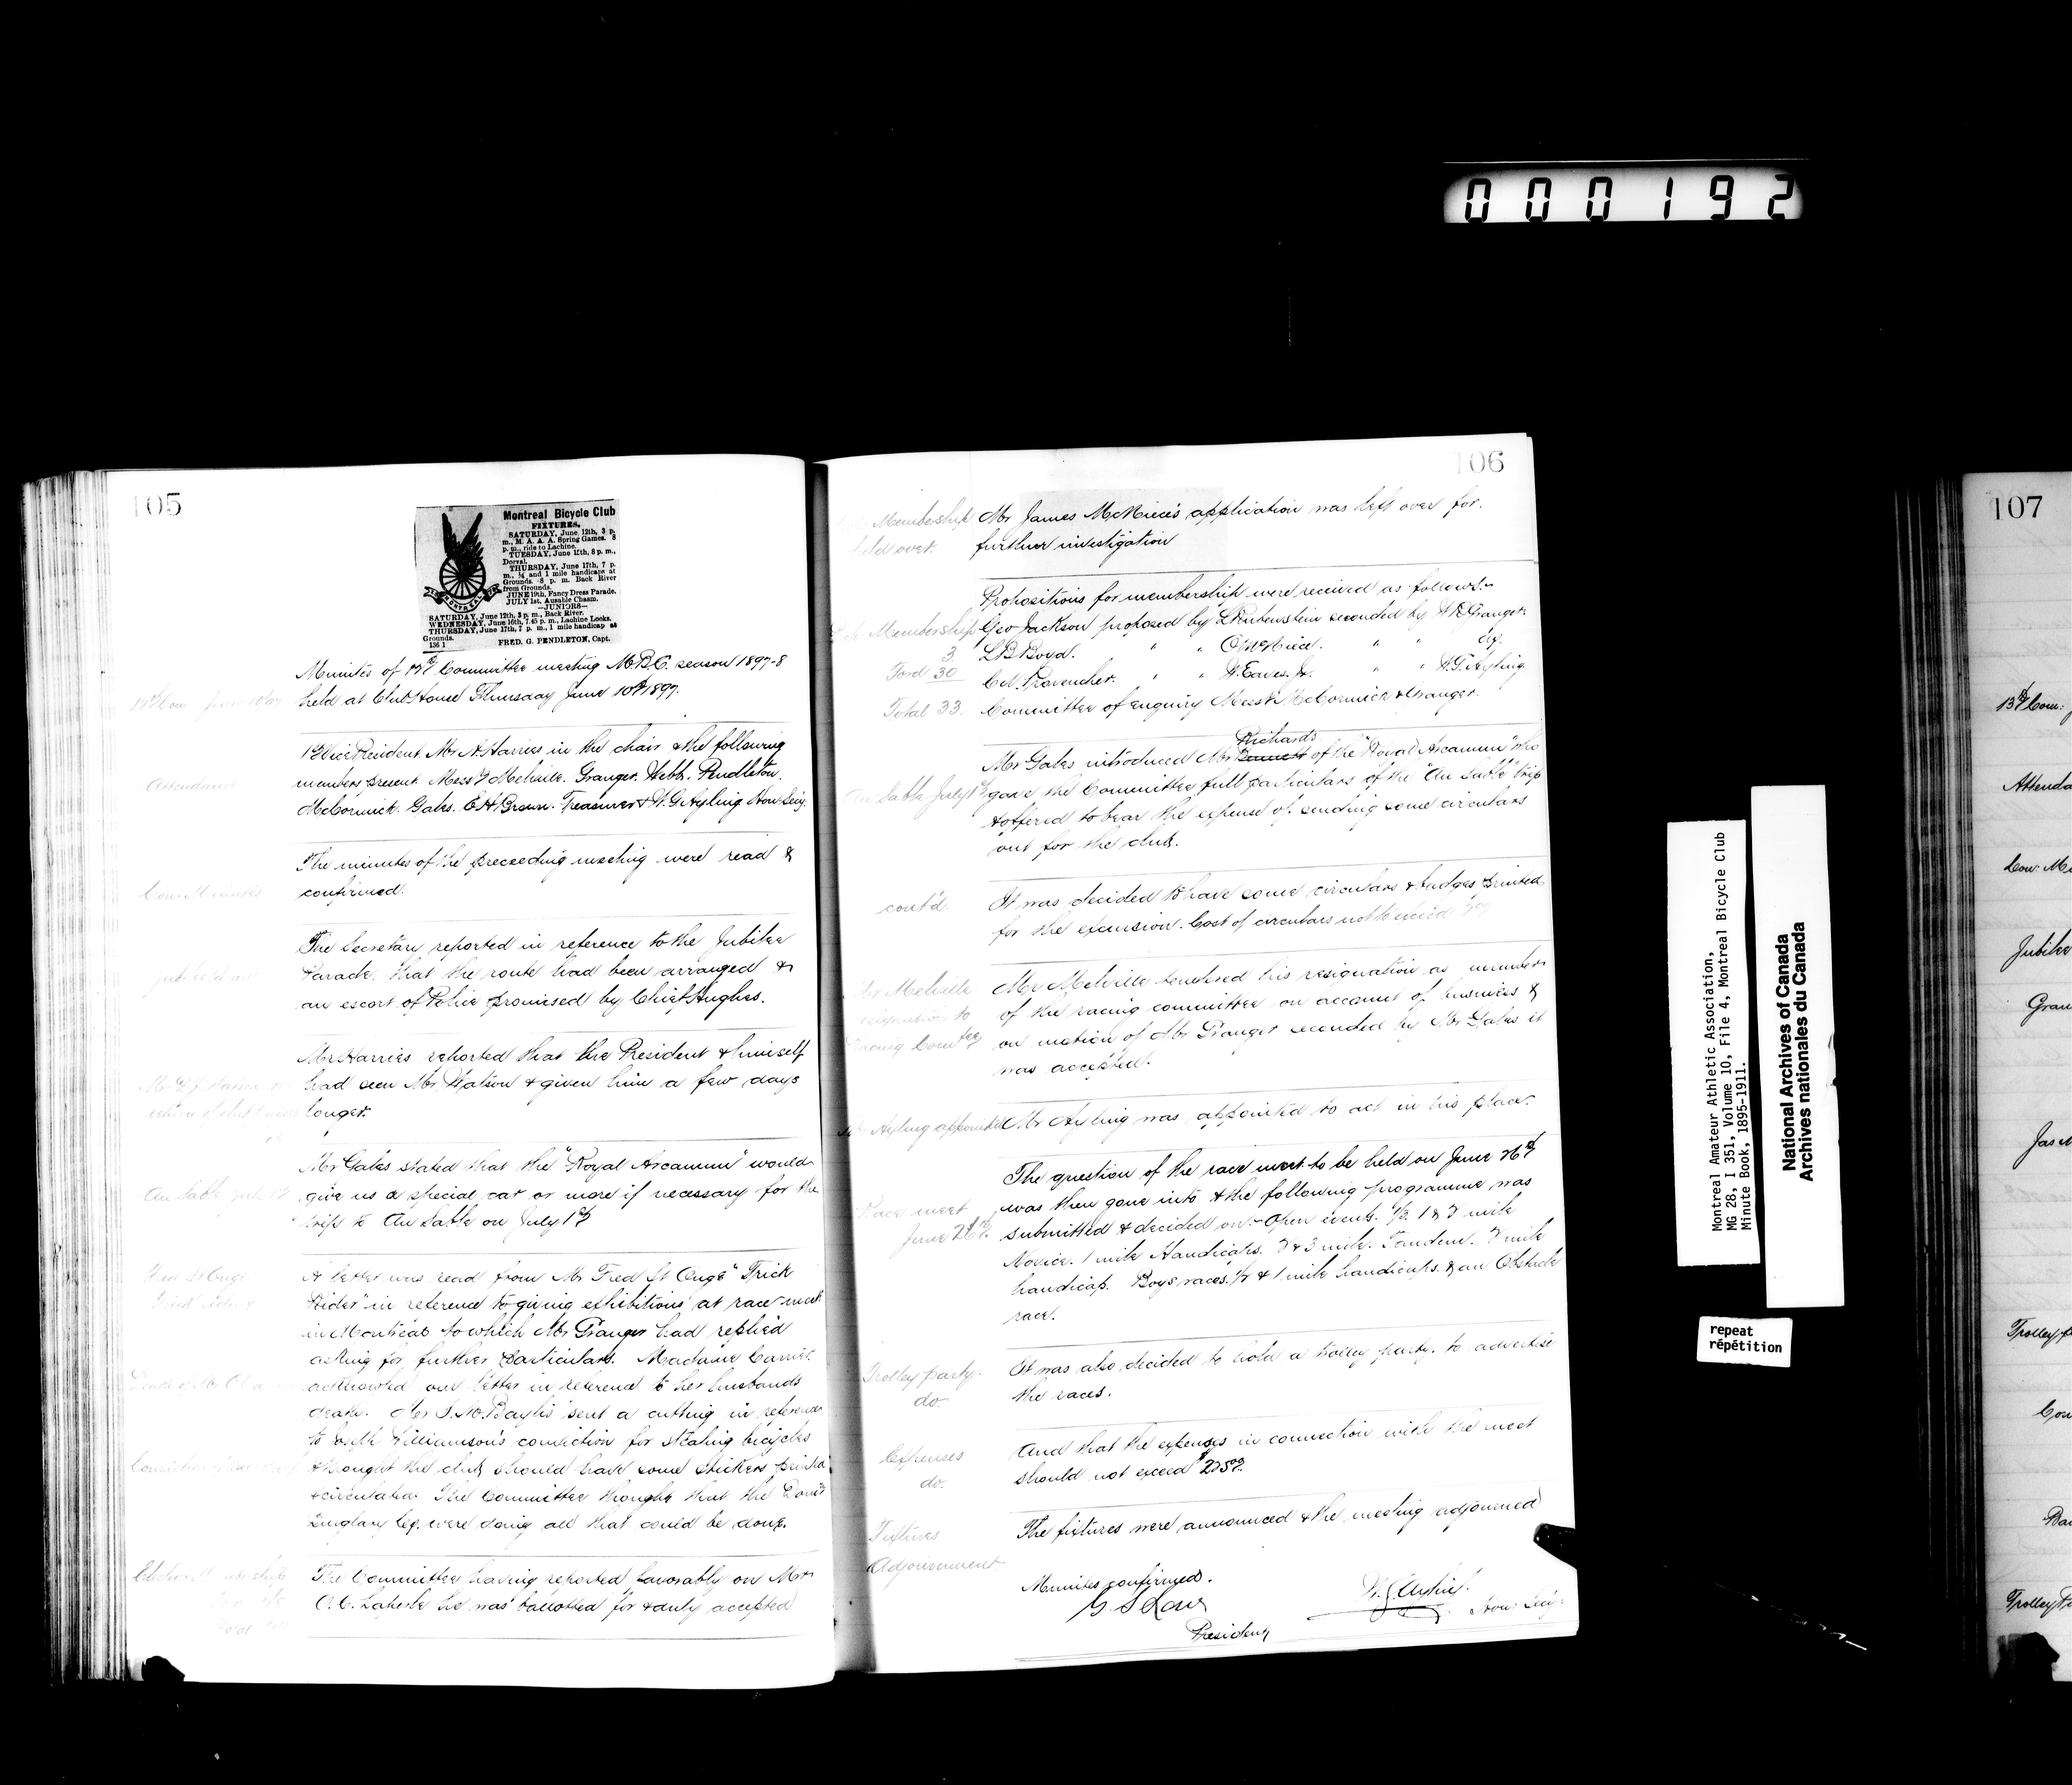 000192
105
Montreal Bicycle Club
FIXTURES.
SATURDAY, June 12th, 3 p.
m., M. A. A. A. Spring Games. 8
p. m., ride to Lachine.
TUESDAY, June 15th, 8 p. m.,
Dorval.
THURSDAY, June 17th, 7 p.
m., ¼ and 1 mile handicaps at
Grounds. 8 p. m. Back River
from Grounds.
JUNE 19th, Fancy Dress Parade.
JULY 1st, Ausable Chasm.
—JUNIORS—
SATURDAY, June 12th, 3 p. m., Back River.
WEDNESDAY, June 16th, 7.45 p. m., Lachine Locks.
THURSDAY, June 17th, 7 p. m., 1 mile handicap at
Grounds.
136 1 FRED. G. PENDLETON, Capt.
MONTREAL
Minutes of 12th Committee meeting M.B.C. season 1897-8
held at Club House Thursday June 10th 1897.
Attendance
1st Vice President Mr A. Harries in the chair & the following
members present. Messrs Melville. Granger. Webb. Pendleton.
McCormick. Gales. E.A. Brown. Treasurer & W.G. Ayling Hon: Secy.
The minutes of the preceeding meeting were read &
confirmed.
The Secretary reported in reference to the Jubilee
Parade, that the route had been arranged &
an escort of Police promised by Chief Hughes.
Mr Harries reported that the President & himself
had seen Mr Watson & given him a few days
longer.
Mr Gales stated that the "Royal Arcanum" would
give us a special car or more if necessary for the
trip to Au Sable on July 1st
A letter was read from Mr Fred St Onge "Trick
Rider" in reference to giving exhibitions at race meet
in Montreal to which Mr Granger had replied
asking for further particulars. Madame Carrier
acknowled our letter in reference to her husbands
death. Mr S.M. Baylis sent a cutting in reference
to Williamson's conviction for stealing bicycles
& thought the club should have some stickers printed
& circulated. The Committee thought that the Domn
Burglary Co. were doing all that could be done.
The Committee having reported favorably on Mr
O.C. he was ballotted for & duly accepted
106
Membership
held over.
Mr James McNiece's application was left over for
further investigation
Propositions for membership were received as follows:-
Membership
Geo Jackson proposed by L Rubenstein seconded by W.R. Granger.
3 L B Boyd. " " O McNiece. " " do.
Ford 30 Provencher. " " W. Eaves. Jr. " " W.G. Ayling
Total 33. Committee of Enquiry Messrs McCormick & Granger.
Richards
Au Sable July 1st
Mr Gales introduced Mr Bennett of the "Royal Arcanum" who
gave the Committee full particulars of the "Au Sable" trip
& offered to bear the expense of sending some circulars
out for the club.
cont'd.
It was decided to have some circulars & badges printed
for the excursion. Cost of circulars not to exceed
Mr Melville
resignation to
Racing Comtee
Mr Melville tendered his resignation as member
of the racing committee on account of business &
on motion of Mr Granger seconded by Mr Gales it
was accepted.
Mr Ayling appointed
Mr Ayling was appointed to act in his place.
Race meet
June 26th.
The question of the race meet to be held on June 26th
was then gone into & the following programme was
submitted & decided on:- Open events. 1/2. 1 & 5 mile
Novice. 1 mile Handicaps. 2 & 3 mile. Tandem. 2 mile
handicap. Boys races. 1/2 & 1 mile handicaps. & an Obstacle
race.
Trolley party.
do.
It was also decided to hold a trolley party. to advertise
the races.
Expenses
do.
And that the expenses in connection with the meet
should not exceed $275.00
Fixtures
Adjournment
The fixtures were announced & the meeting adjourned
Minutes confirmed.
President
W.G. Ayling.
Hon: Secy.
Montreal Amateur Athletic Association,
MG 28, I 351, Volume 10, File 4, Montreal Bicycle Club
Minute Book, 1895-1911.
National Archives of Canada
Archives nationales du Canada
repeat
répétition
107
13th Com:
Attenda
Con: M
Jubilee
Gran
Jas M
Trolley p
Con
Ba
Trolley P